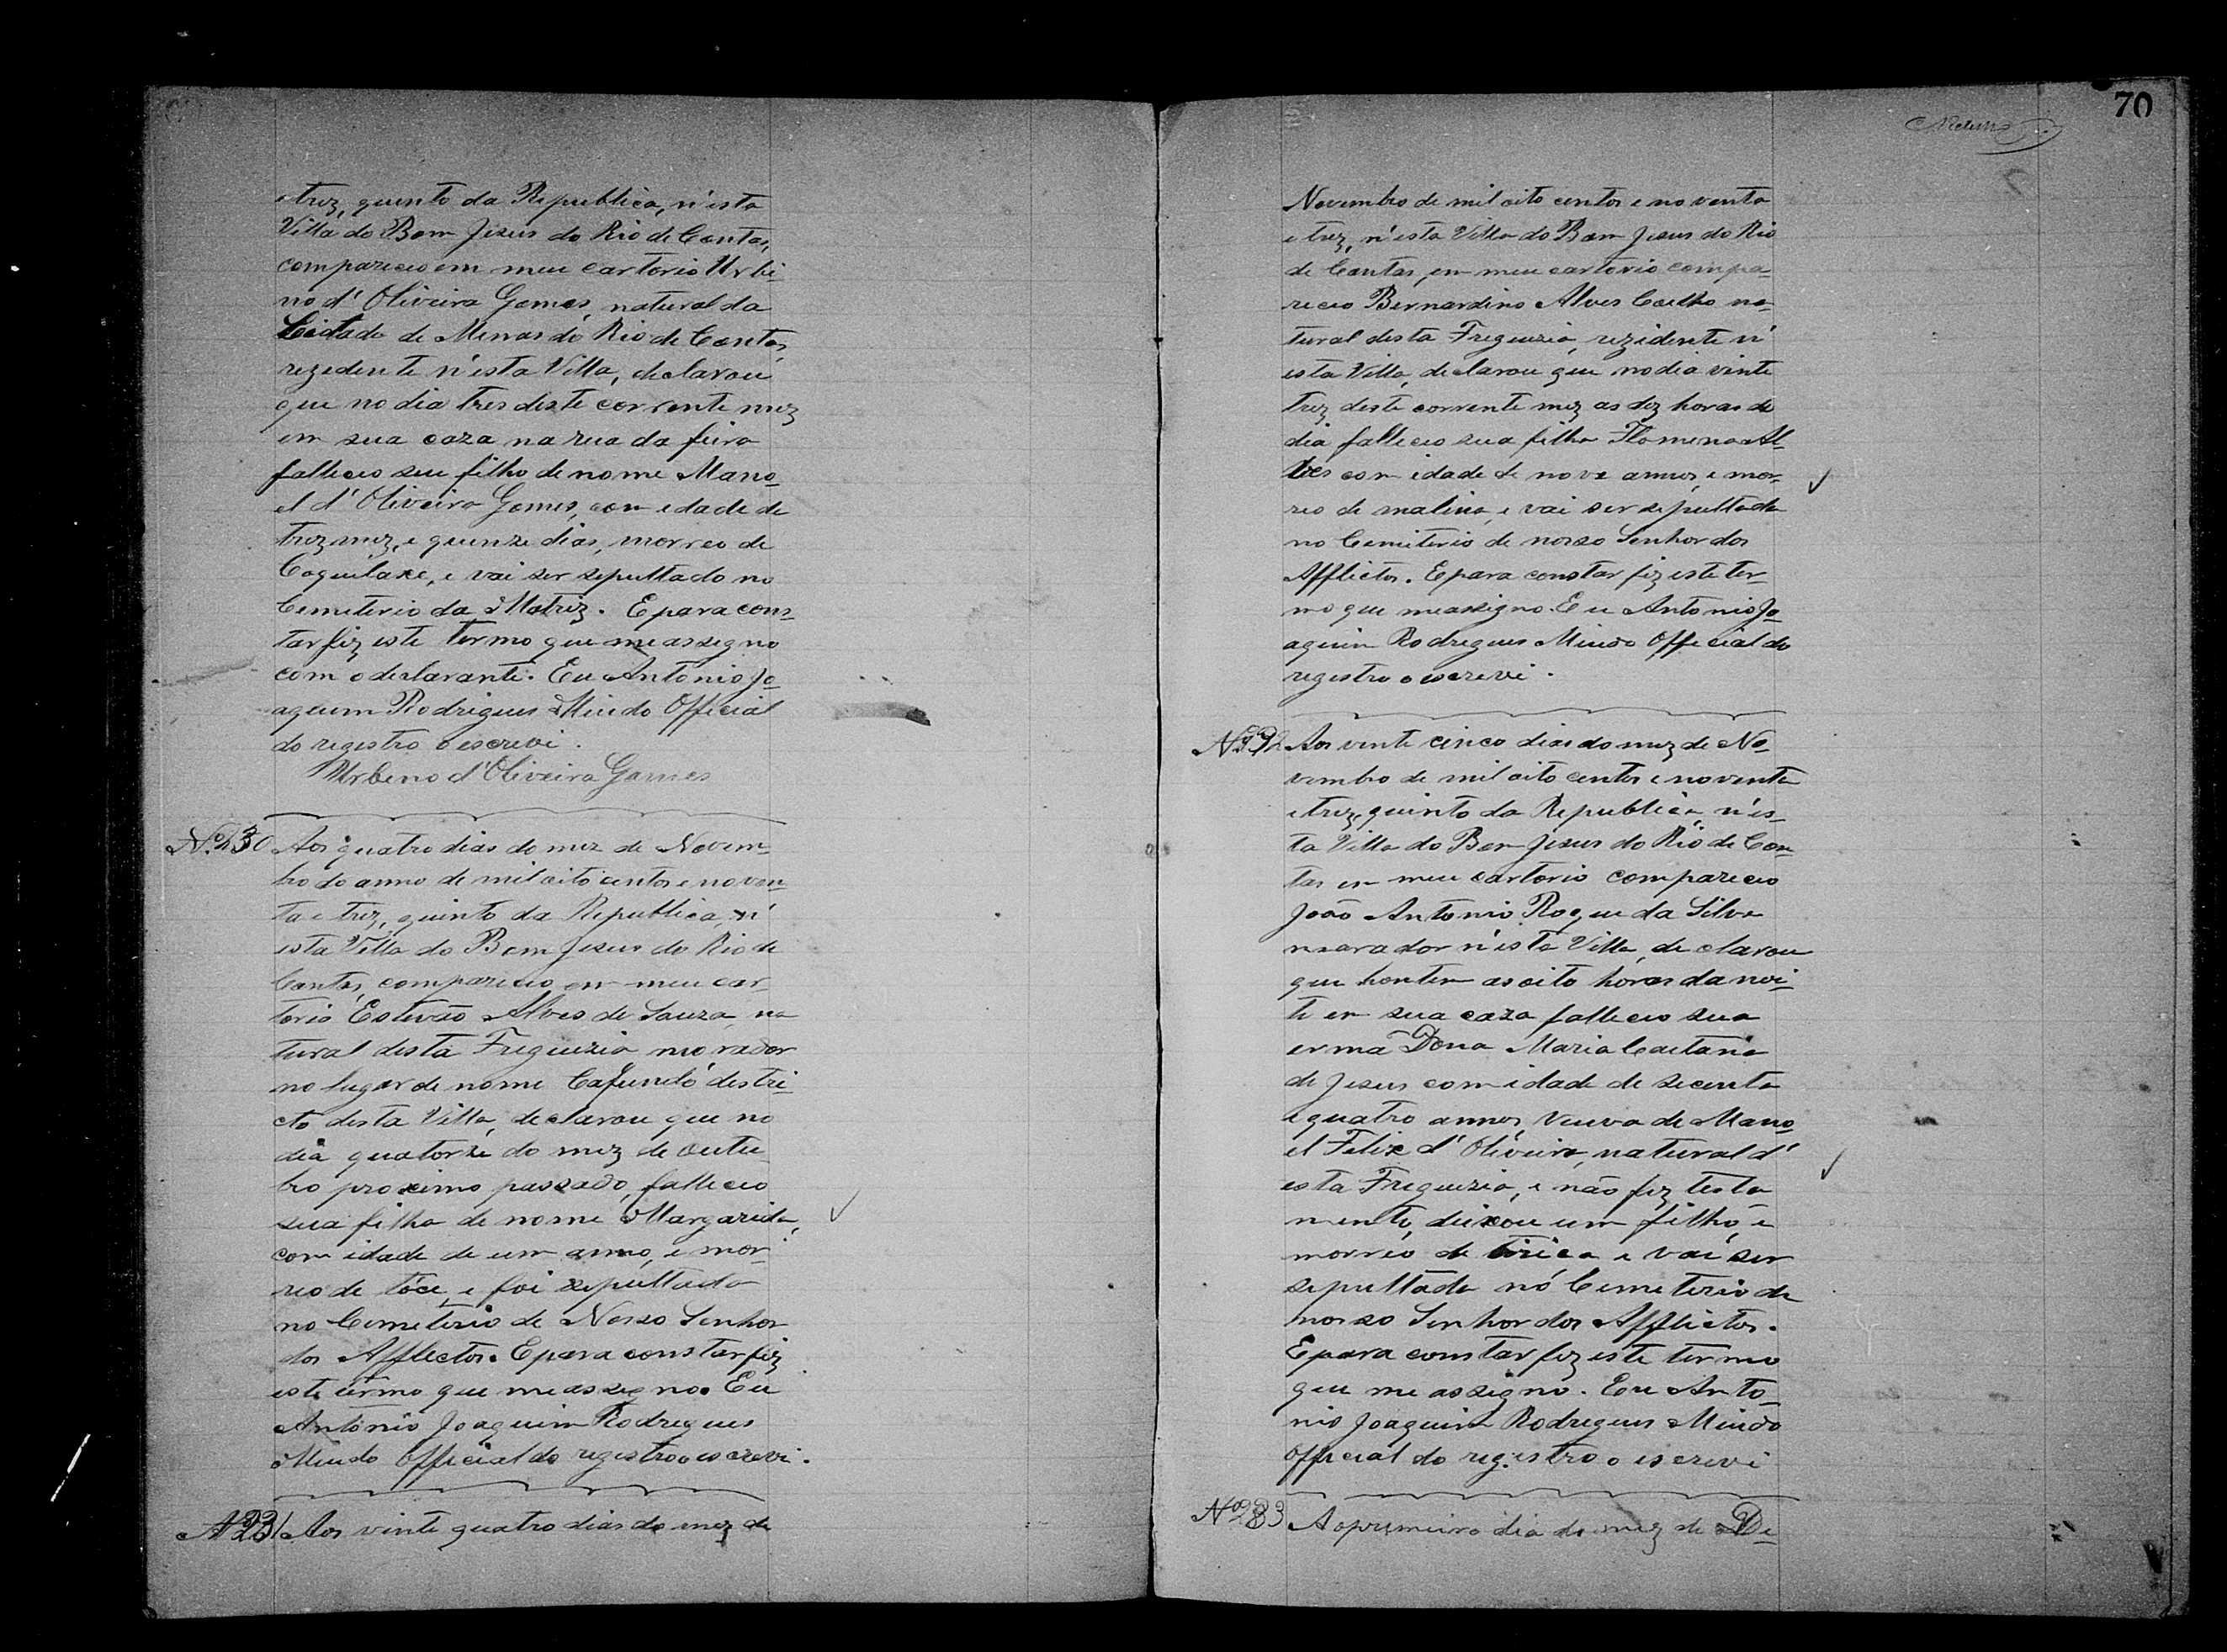 e trez, quinto da Republica, n'esta
Villa do Bom Jezus do Rio de Contas,
compareceo em meu cartorio Urbi-
no d'Oliveira Gomes, natural da
Cidade de Minas do Rio de Contas,
rezedente n'esta Villa, declarou
que no dia tres deste corrente mez
em sua caza na rua da feira
falleceo seu filho de nome Mano-
el d'Oliveira Gomes, com edade de
trez mez, e quenze dias, morreo de
Coqueluxe, e vai ser sepultado no
Cemeterio da Matriz. E para cons-
tar fiz este termo que me assegno
com o declarante. Eu Antonio Jo-
aquem Rodrigues Miudo Official
do registro o escrevi.
Urbeno d'Oliveira Gomes
No. 230 Aos quatro dias do mez de Novem-
bro do anno de mil oito centos e noven-
ta e trez, quinto da Republica, n'
esta Villa do Bom Jezus do Rio de
Contas, compareceo em meu car-
torio Estevão Alves de Souza, na
tural desta Freguezia, morador
no lugar de nome Cafuneló destri-
cto desta Villa, declarou que no
dia quatorze do mez de outu-
bro proximo passado, falleceo
sua filha de nome Margarida,
com idade de um anno, e mor-
reo de tóce, e foi sepultada
no Cemeterio de Nosso Senhor
dos Afflectos. E para constar fiz
este termo que me assegno. Eu
Antonio Joaquim Rodregues
Miudo Official do registro o escrevi.
No 231 Aos vinte quatro dias do mez de
70
Novembro de mil oito centos e noventa
e trez, n'esta Villa do Bom Jesus do Rio
de Contas, em meu cartorio compa-
receo Bernardino Alves Coelho na-
tural desta Freguezia, rezidente n'
esta Villa, declarou que no dia vinte
trez deste corrente mez as dez horas do
dia falleceo sua filha Flomena Al-
ves com idade de nove annos, e mor-
reo de malina, e vai ser sepultada
no Cemiterio de nosso Senhor dos
Afflictos. E para constar fiz este ter-
mo que me assigno. Eu Antonio Jo-
aquim Rodregues Miudo Official do
registro o escrevi.
No 232 Aos vente cinco dias do mez de No-
vembro de mil oito centos e noventa
e trez, quinto da Republica, n'es-
ta Villa do Bom Jezus do Rio de Con-
tas em meu cartorio compareceo
João Antonio Roque da Silva
morador n'esta Villa, declarou
que hontem as oito horas da noi-
te em sua caza falleceo sua
ermã Dona Maria Caetana
de Jesus com idade de secenta
e quatro annos, veuva de Mano-
el Felix d'Oliveira, natural d'
esta Freguezia, e não fez testa
mento, deixou um filho, e
morreo de tirica e vai ser
sepultada no Cemeterio de
nosso Senhor dos Afflictos.
E para constar fiz este termo
que me assigno. Eu Anto-
nio Joaquim Rodregues Miudo
Official do registro o escrevi
No 233 Ao premeiro dia do mez de De-